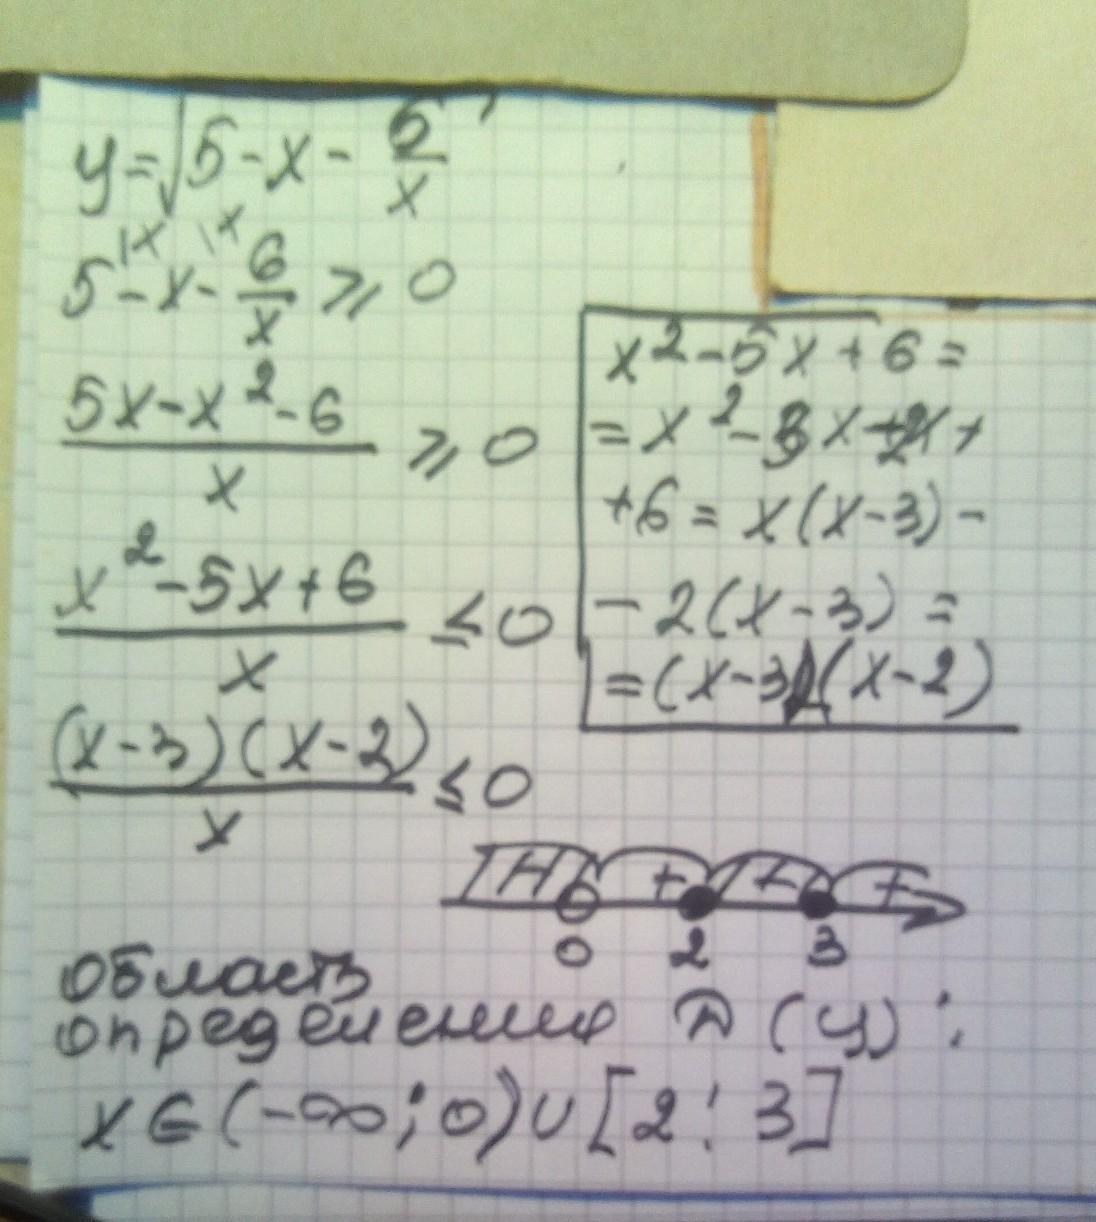 y=√5-x-6/x
5-x-6/x ⩾ 0
(5x-x²-6)/x ⩾ 0
(x²-5x+6)/x ≤ 0
(x-3)(x-2)/x ≤ 0
x²-5x+6=
=x²-3x-2x+
+6=x(x-3)-
-2(x-3)=
=(x-3)(x-2)
0 2 3
область
определения D(y):
x∈(-∞;0)∪[2;3]